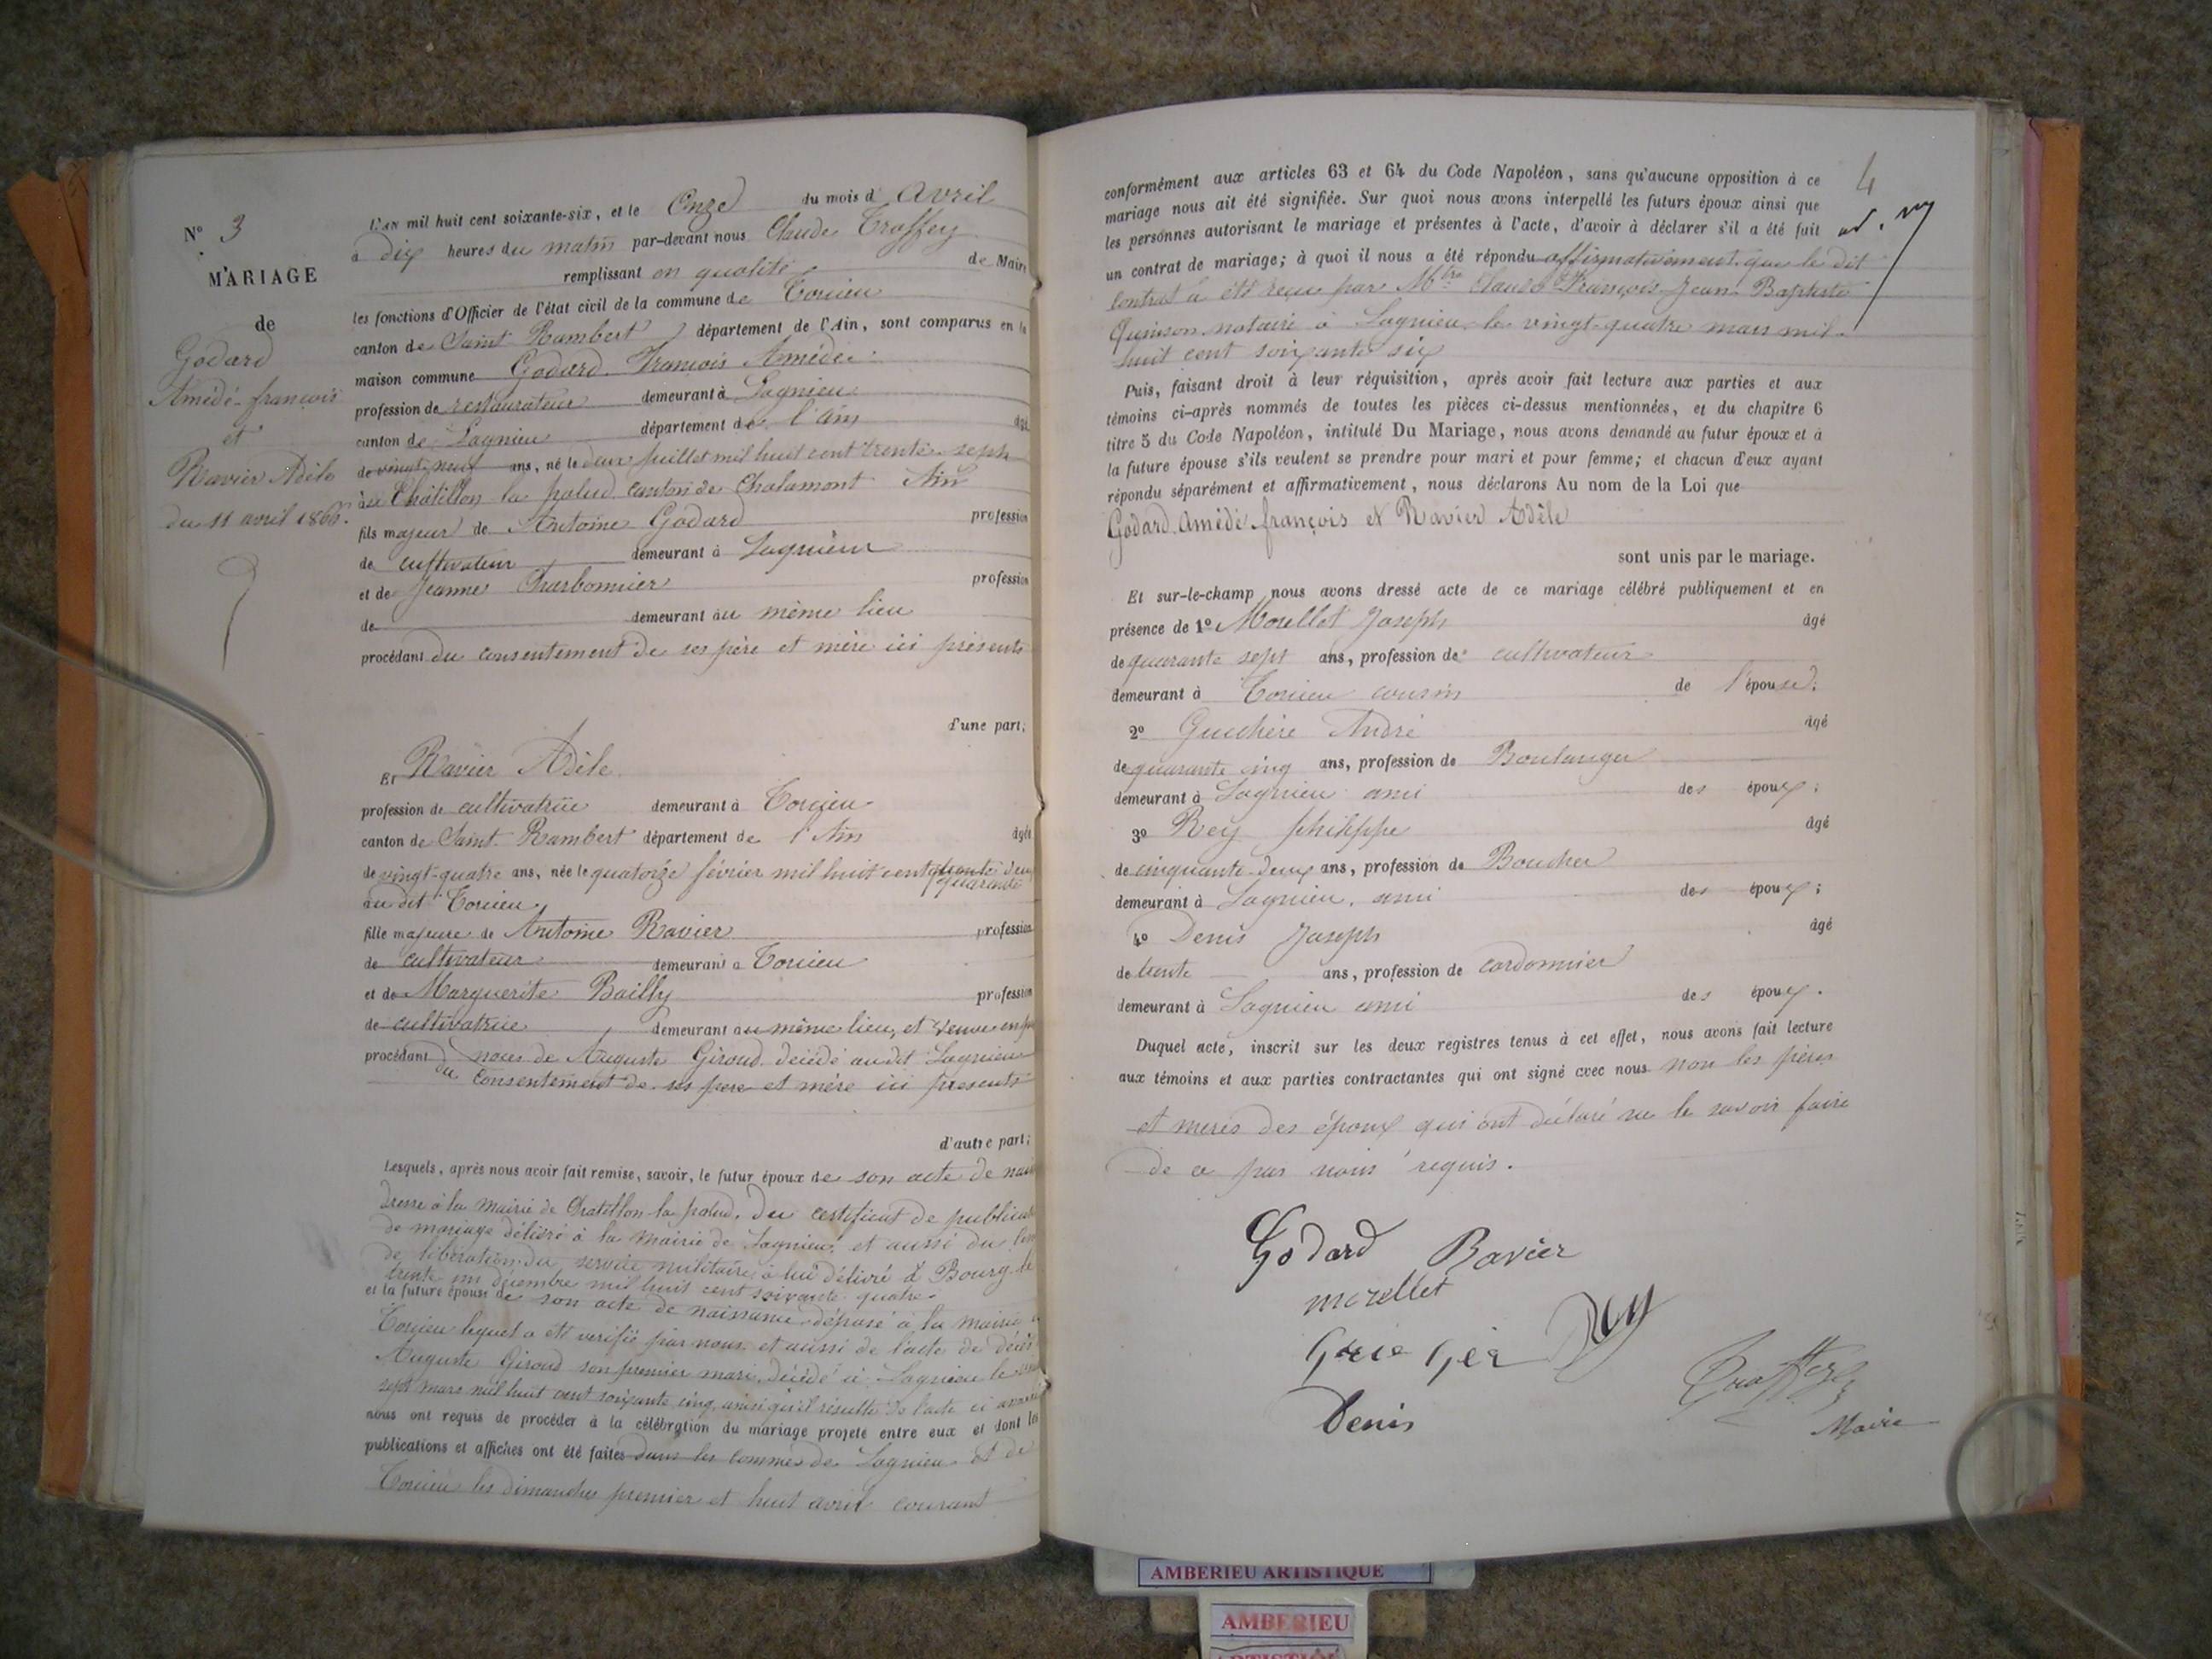 N° 3
MARIAGE
de
Godard
Amédé-françois
et
Ravier Adèle
du 11 avril 1866.
L'AN mil huit cent soixante-six, et le Onze du mois d'avril
à dix heures du matin par-devant nous Claude Troffey
remplissant en qualité de Maire
les fonctions d'Officier de l'état civil de la commune de Torcieu
canton de Saint-Rambert département de l'Ain, sont comparus en la
maison commune Godard François Amédée
profession de restaurateur demeurant à Lagnieu
canton de Lagnieu département de l'ain âgé
de vingt-neuf ans, né le deux juillet mil huit cent trente-sept
à Châtillon la palud canton de Chalamont Ain
fils majeur de Antoine Godard profession
de cultivateur demeurant à Lagnieu
et de Jeanne Charbonnier profession
de demeurant au même lieu
procédant du consentement de ses père et mère ici présents
d'une part;
Et Ravier Adèle
profession de cultivatrice demeurant à Torcieu
canton de Saint-Rambert département de l'Ain âgée
de vingt-quatre ans, née le quatorze février mil huit cent quarante deux
au dit Torcieu
fille majeure de Antoine Ravier profession
de cultivateur demeurant à Torcieu
et de Marguerite Bailly profession
de cultivatrice demeurant au même lieu, et veuve en
procédant noces de Auguste Giroud décédé au dit Lagnieu
du consentement de ses père et mère ici présents
d'autre part;
Lesquels, après nous avoir fait remise, savoir, le futur époux de son acte de
dressé à la Mairie de Chatillon la palud, du certificat de
de mariage délivré à la Mairie de Lagnieu, et aussi du
de libération du service militaire à lui délivré à Bourg le
trente un décembre mil huit cent soixante quatre
et la future épouse de son acte de naissance déposé à la mairie
Torcieu lequel a été vérifié par nous et aussi de l'acte de décès
Auguste Giroud son premier mari, décédé à Lagnieu le
sept mars mil huit cent soixante cinq, ainsi qu'il résulte de l'acte ci
nous ont requis de procéder à la célébration du mariage projeté entre eux et dont les
publications et affiches ont été faites dans les communes de Lagnieu et de
Torcieu les dimanches premier et huit avril courant
4
conformément aux articles 63 et 64 du Code Napoléon, sans qu'aucune opposition à ce
mariage nous ait été signifiée. Sur quoi nous avons interpellé les futurs époux ainsi que
les personnes autorisant le mariage et présentes à l'acte, d'avoir à déclarer s'il a été fait
un contrat de mariage; à quoi il nous a été répondu affirmativement que le dit
contrat a été reçu par Mtre Claude François Jean-Baptiste
Quinson notaire à Lagnieu le vingt-quatre mars mil
huit cent soixante six
Puis, faisant droit à leur réquisition, après avoir fait lecture aux parties et aux
témoins ci-après nommés de toutes les pièces ci-dessus mentionnées, et du chapitre 6
titre 5 du Code Napoléon, intitulé Du Mariage, nous avons demandé au futur époux et à
la future épouse s'ils veulent se prendre pour mari et pour femme; et chacun d'eux ayant
répondu séparément et affirmativement, nous déclarons Au nom de la Loi que
Godard Amédé françois et Ravier Adèle
sont unis par le mariage.
Et sur-le-champ nous avons dressé acte de ce mariage célébré publiquement et en
présence de 1° Morellet Joseph âgé
de quarante sept ans, profession de cultivateur
demeurant à Torcieu cousin de l'épouse;
2° André âgé
de quarante cinq ans, profession de Boulanger
demeurant à Lagnieu ami des époux;
3° Rey philippe âgé
de cinquante deux ans, profession de Boucher
demeurant à Lagnieu, ami des époux;
4° Denis Joseph âgé
de trente ans, profession de cordonnier
demeurant à Lagnieu ami des époux.
Duquel acte, inscrit sur les deux registres tenus à cet effet, nous avons fait lecture
aux témoins et aux parties contractantes qui ont signé avec nous non les pères
et mères des époux qui ont déclaré ne le savoir faire
de ce par nous requis.
Godard Ravier
morellet
Rey
Denis
Troffey
Maire
AMBERIEU ARTISTIQUE
AMBERIEU
ARTISTIQUE